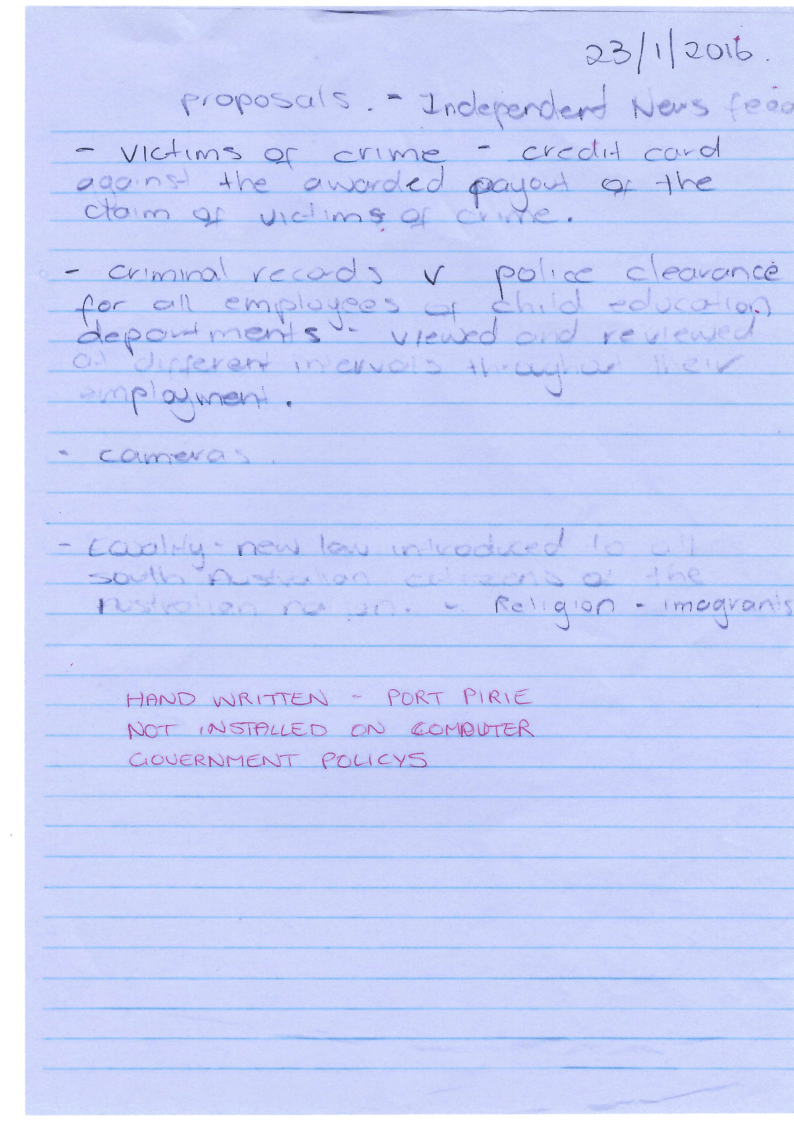 23/1/2016.
proposals. - Independent News feed
- victims of crime - credit card
against the awarded payout of the
claim of victims of crime.
- criminal records v police clearance
for all employees of child education
departments - viewed and reviewed
at different intervals throughout their
employment.
- cameras.
- Equality - new law introduced to all
south Australian citizens of the
Australian nation. - Religion - imagrants
HAND WRITTEN - PORT PIRIE
NOT INSTALLED ON COMPUTER
GOVERNMENT POLICYS